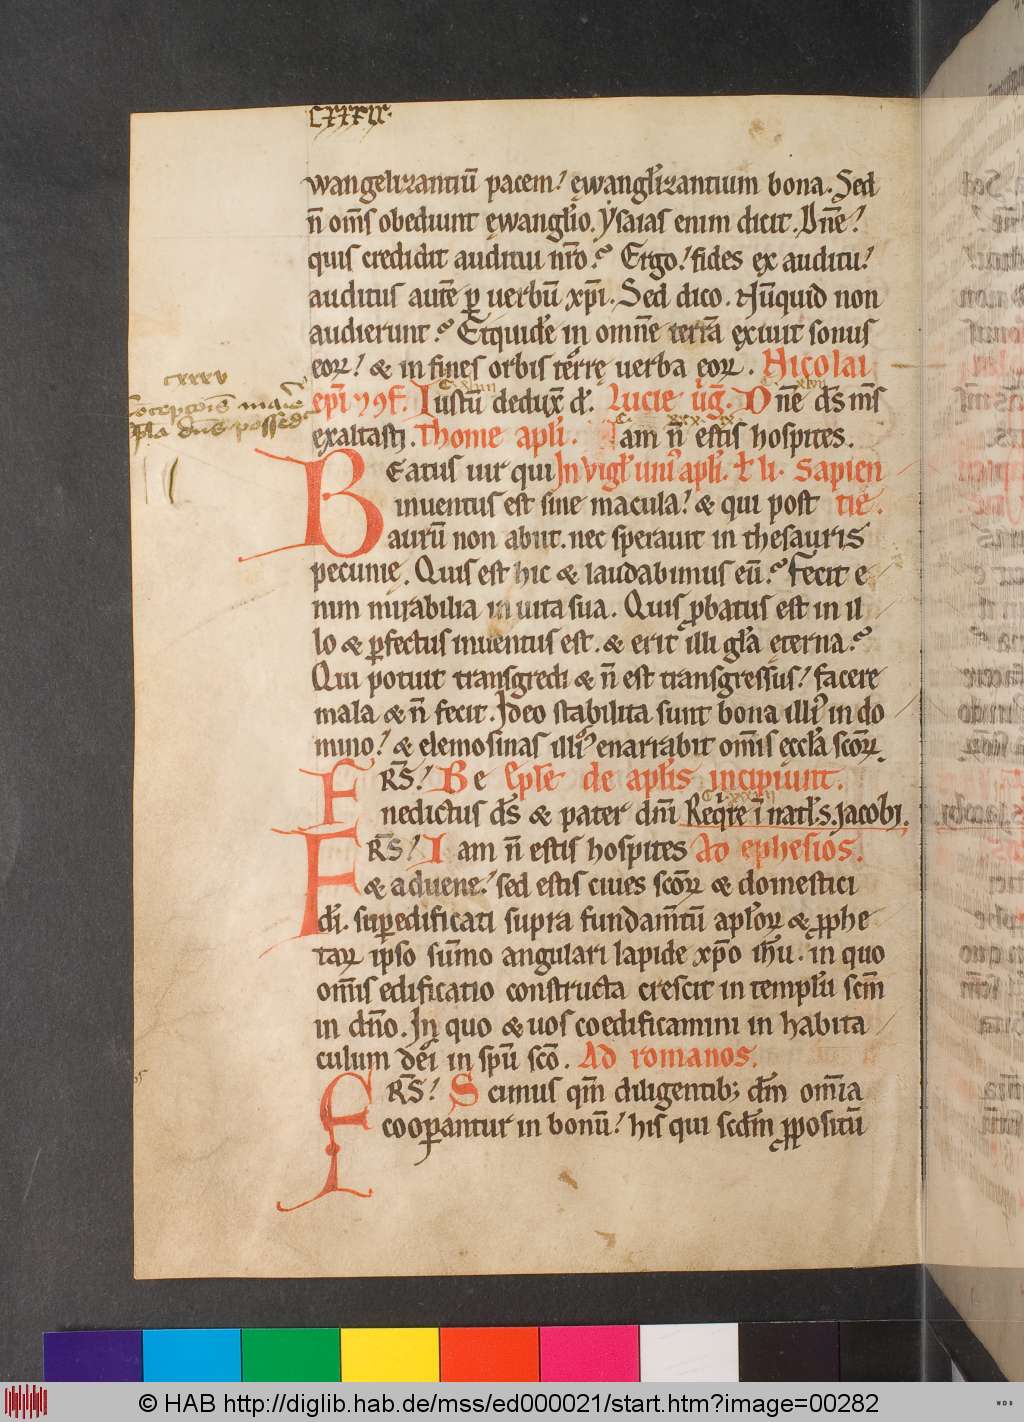 cxxxix.
wangelizantiū pacem! ęwangl̕izantium bona. Sed
n̄ om̄s obediunt ęwangl̕io. Ysaias enim dicit. Dn̄e!
quis credidit auditui nr̄o? Ergo! fides ex auditu!
auditus autē ꝑ uerbū xp̄i. Sed dico. Nūquid non
audierunt? Et quidē in omnē terrā exiuit sonus
eoꝝ! & in fines orbis terrę uerba eoꝝ. Nicolai
cxxxv
ep̄i ⁊ ꝯf. Iustū dedux̄ d̄s. Lucie uir̄g. Dn̄e ds̄ m̄s
exaltasti. Thome apl̕i. Iam n̄ estis hospites.
Beatus uir qui In vigl̕ uni᷒ apl̕i. łi li. Sapien
inuentus est sine macula! & qui post tie.
aurū non abiit. nec sperauit in thesauris
pecunie. Quis est hic & laudabimus eū? Fecit e
nim mirabilia in uita sua. Quis ꝓbatus est in il
lo & ꝑfectus inuentus est. & erit illi gl̕a eterna?
Qui potuit transgredi & n̄ est transgressus! facere
mala & n̄ fecit. Ideo stabilita sunt bona illi᷒ in do
mino! & elemosinas illi᷒ enarrabit om̄is eccl̕a scōꝝ.
FRS̄! Be Epl̕e de apl̕is incipiunt.
nedictus ds̄ & pater dn̄i Reqͥre ī natl̕. s. Jacobi.
FRS̄! Iam n̄ estis hospites Ad ephesios.
& aduene! sed estis ciues scōꝝ & domestici
di̅. suꝑedificati supra fundam̄tū apl̕oꝝ & ꝓphe
taꝝ ipso sūmo angulari lapide xp̄o ih̄u. in quo
om̄is edificatio constructa crescit in templū scm̄
in dn̄o. In quo & uos coedificamini in habita
culum dei in sp̄u scō. Ad romanos.
FRS̄! Scimus qm̄ diligentibꝫ dm̄ om̄ia
cooꝑantur in bonū! his qui scdm̄ ꝓpositū
© HAB http://diglib.hab.de/mss/ed000021/start.htm?image=00282